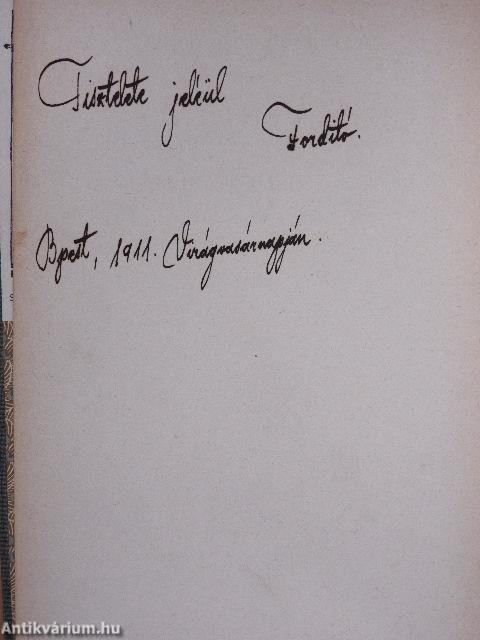 Tisztelete jeléül
Fordító.
Bpest, 1911. Virágvasárnapján.
Antikvárium.hu